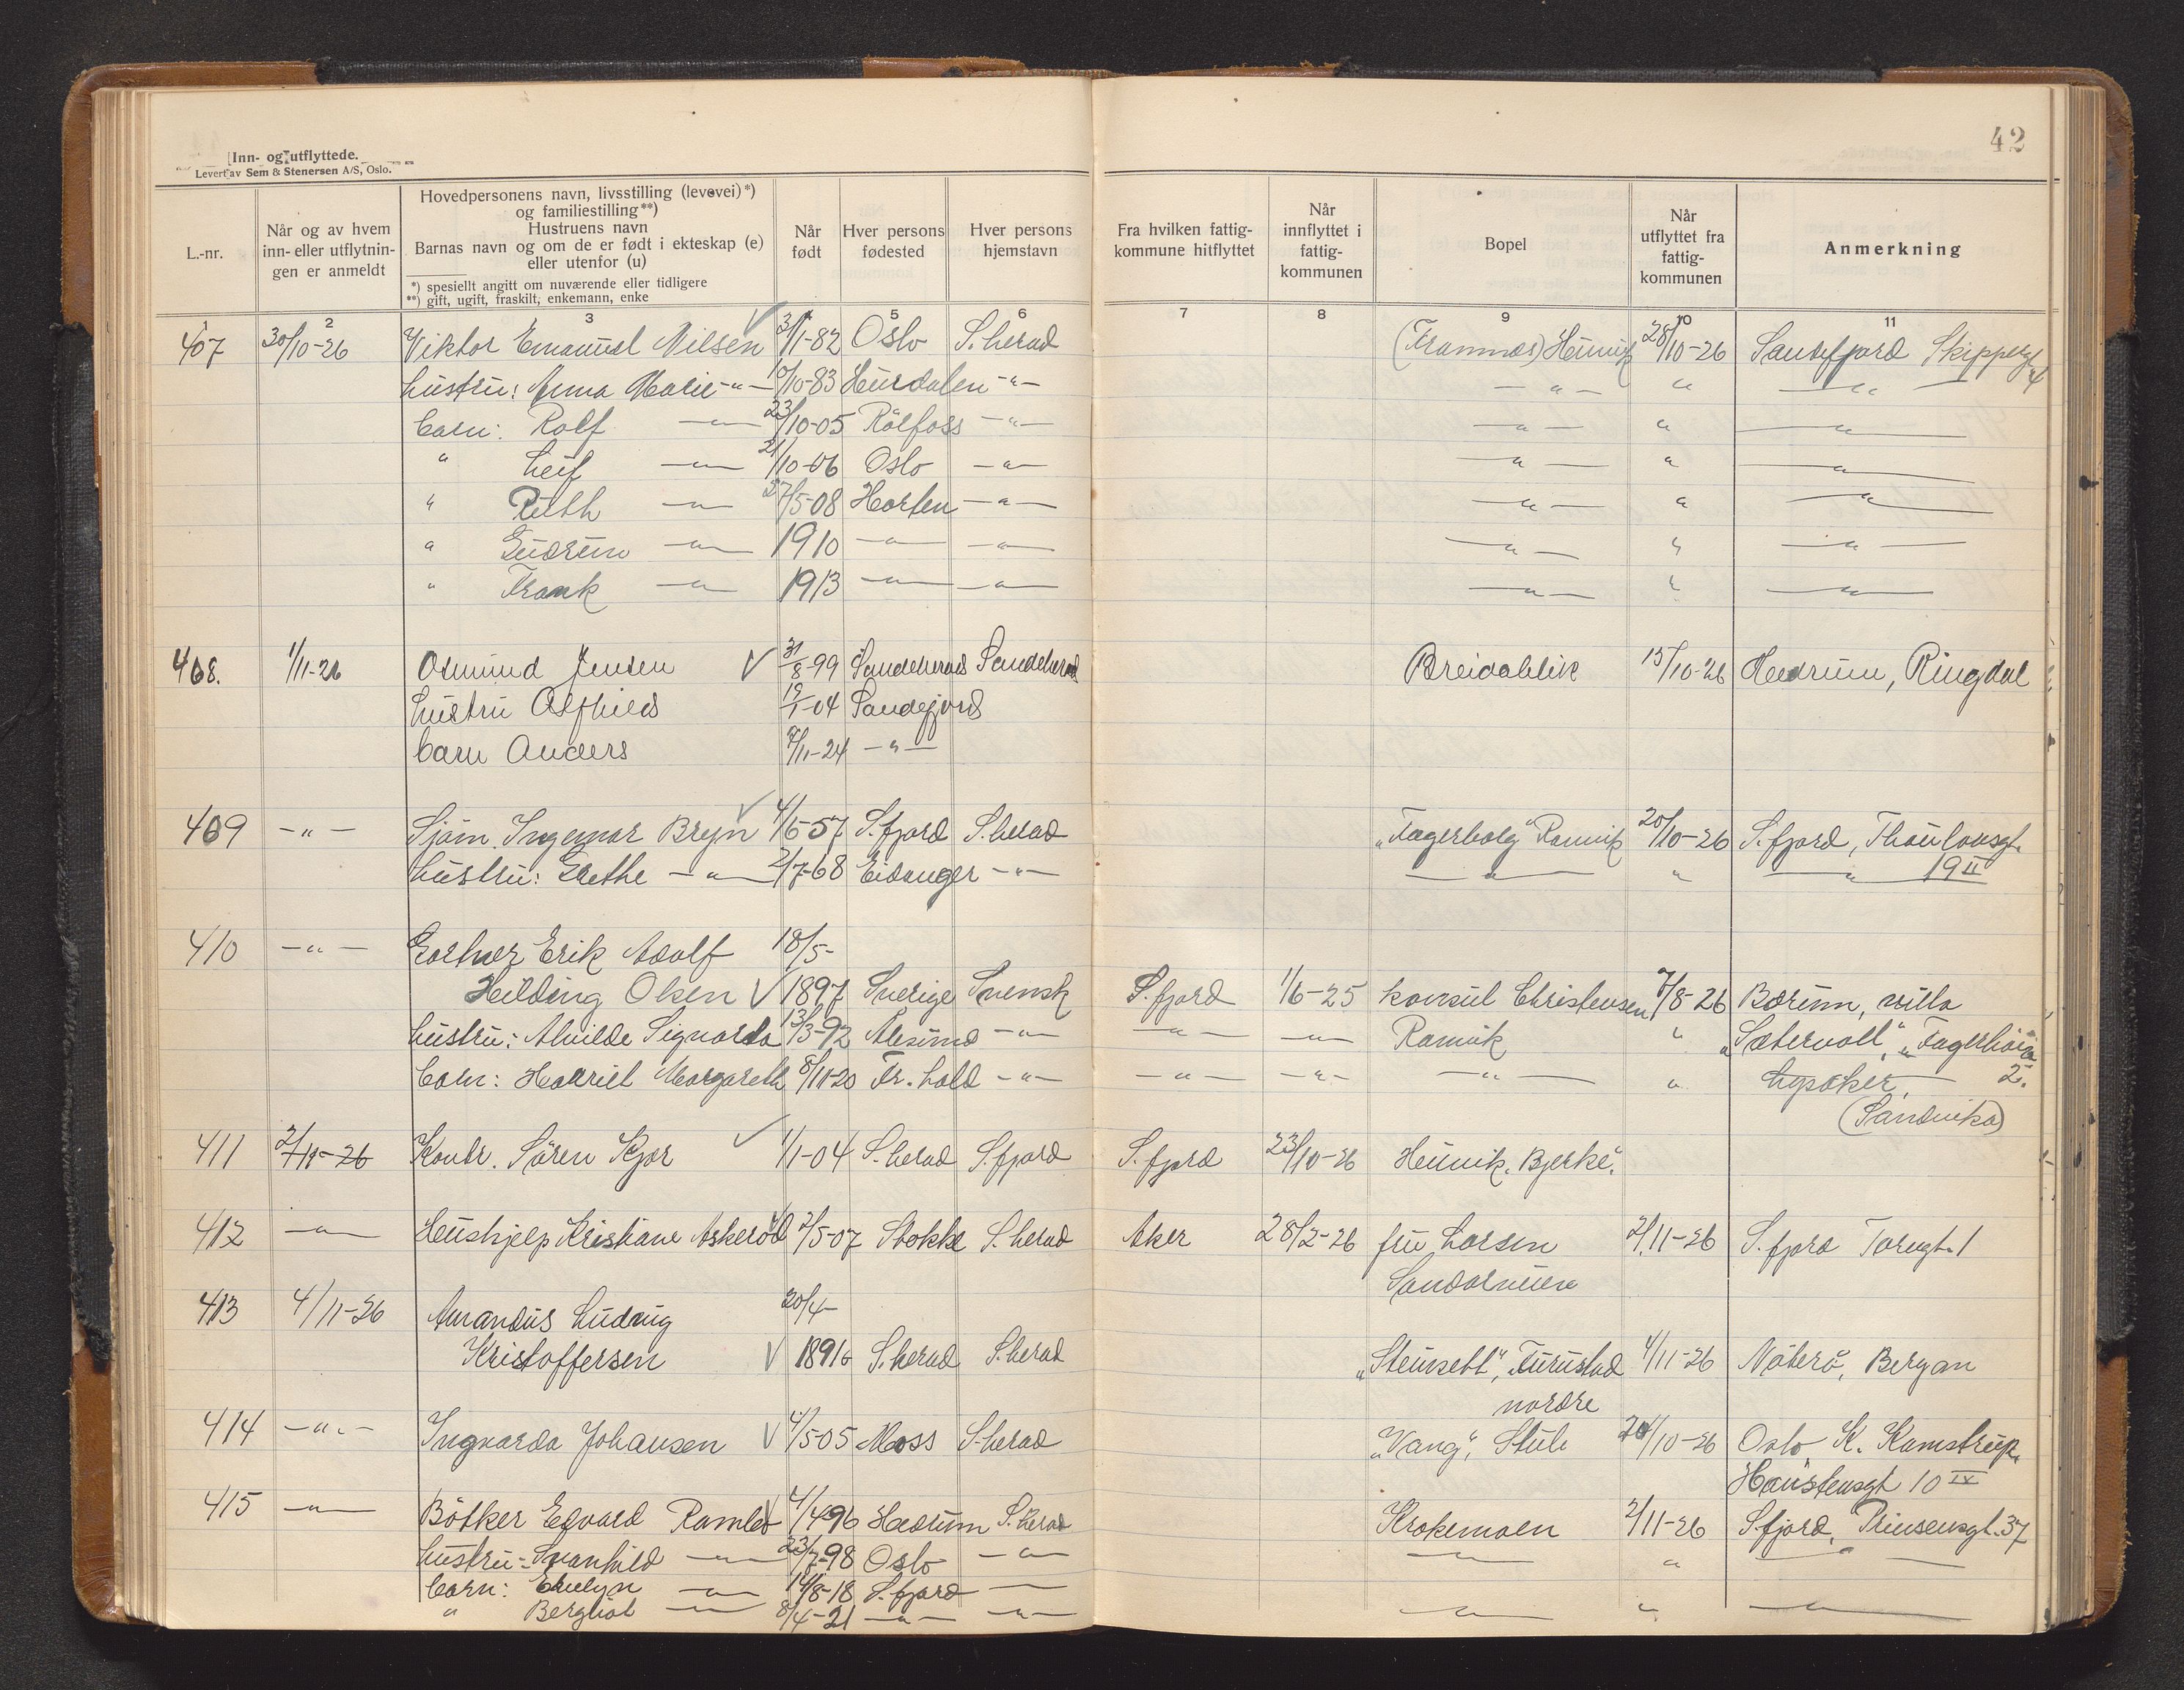 42
Inn- og utflyttede.
Levert av Sem & Stenersen A/S, Oslo.
L.-nr.
Når og av hvem inn- eller utflytnin- gen er anmeldt
Hovedpersonens navn, livsstilling (levevei)*)
og familiestilling**)
Hustruens navn
Barnas navn og om de er født i ekteskap (e)
eller utenfor (u)
*) spesiellt angitt om nuværende eller tidligere
**) gift, ugift, fraskilt, enkemann, enke
Når født
Hver persons fødested
Hver persons hjemstavn
Fra hvilken fattig- kommune hitflyttet
Når innflyttet i fattig- kommunen
Bopel
Når utflyttet fra fattig- kommunen
Anmerkning
2 3 5 6 7 8 9 10 11
407 30/10-26 Viktor Emanuel Nilsen 3/1-82 Oslo S.herad (Framnæs) 28/10-26 Sandefjord Skippergt
hustru: Anna Marie -"- 10/10-83 Hurdalen -"- -"- " -"- 4
barn: Rolf -"- 23/10-05 -"- -"- " -"-
" Leif -"- 21/10-06 Oslo -"- -"- " -"-
" Ruth -"- 27/5-08 Horten -"- -"- " -"-
" Gudrun -"- 1910 -"- -"- -"- " -"-
" Frank -"- 1913 -"- -"- -"- " -"-
408. 1/11-26 Osmund Jensen V 31/8-99 Sandeherad Sandeherad Breidablik 15/10-26 Hedrum, Ringdal
hustru Alfhild 19/1-04 Sandefjord
barn Anders /11-24 -"-
409 -"- Sjøm. Ingemar Bryn 4/6-57 S.fjord S.herad "Fagerborg" Ranvik 20/10-26 S.fjord, Thaulowsgt.
hustru: Grethe -"- 2/7-68 Eidanger -"- -"- " -"- 19 II
410 -"- Gartner Erik Adolf 18/5-
Hilding Olsen V 1897 Sverige Svensk S.fjord 1/6-25 konsul Christensen /8-26 Bærum, villa
hustru: Alvilde Sigvarda 13/3-92 Ålesund -"- -"- -"- Ranvik " "Sætervoll", Fagerhøi
barn: Harriet Margareth 8/11-20 Fr.hald -"- -"- -"- -"- " Lysaker, 2.
(Sandvika)
411 Kontr. Sören Kjær 1/1-04 S.herad S.fjord S.fjord 23/10-26 Heimik. Bjerke.
412 -"- Hushjelp Kristiane Askerød 2/5-07 Stokke S.herad Aker 28/2-26 fru Larsen 2/11-26 S.fjord Torvgt. 1
413 4/11-26 Amandus Ludvig 20/4-
Kristoffersen V 1891 S.herad S.herad "Steinsett", Furustad 4/11-26 Nøterø, Bergan
nordre
414 -"- Ingvarda Johansen V 4/5-05 Moss S.herad "Vang", Stub /10-26 Oslo K. Kamstrup.
Haustensgt 10 IV
415 -"- Bötker Edvard Ramlet V 4/4-96 Hedrum S.herad Krokemoen 2/11-26 S.fjord, Prinsensgt. 37
hustru: Svanhild -"- 23/7-98 Oslo -"- -"- " -"-
barn: Evelyn -"- 14/8-18 S.fjord -"-
" Bergliot -"- 8/4-21 -"- -"- -"- " -"-